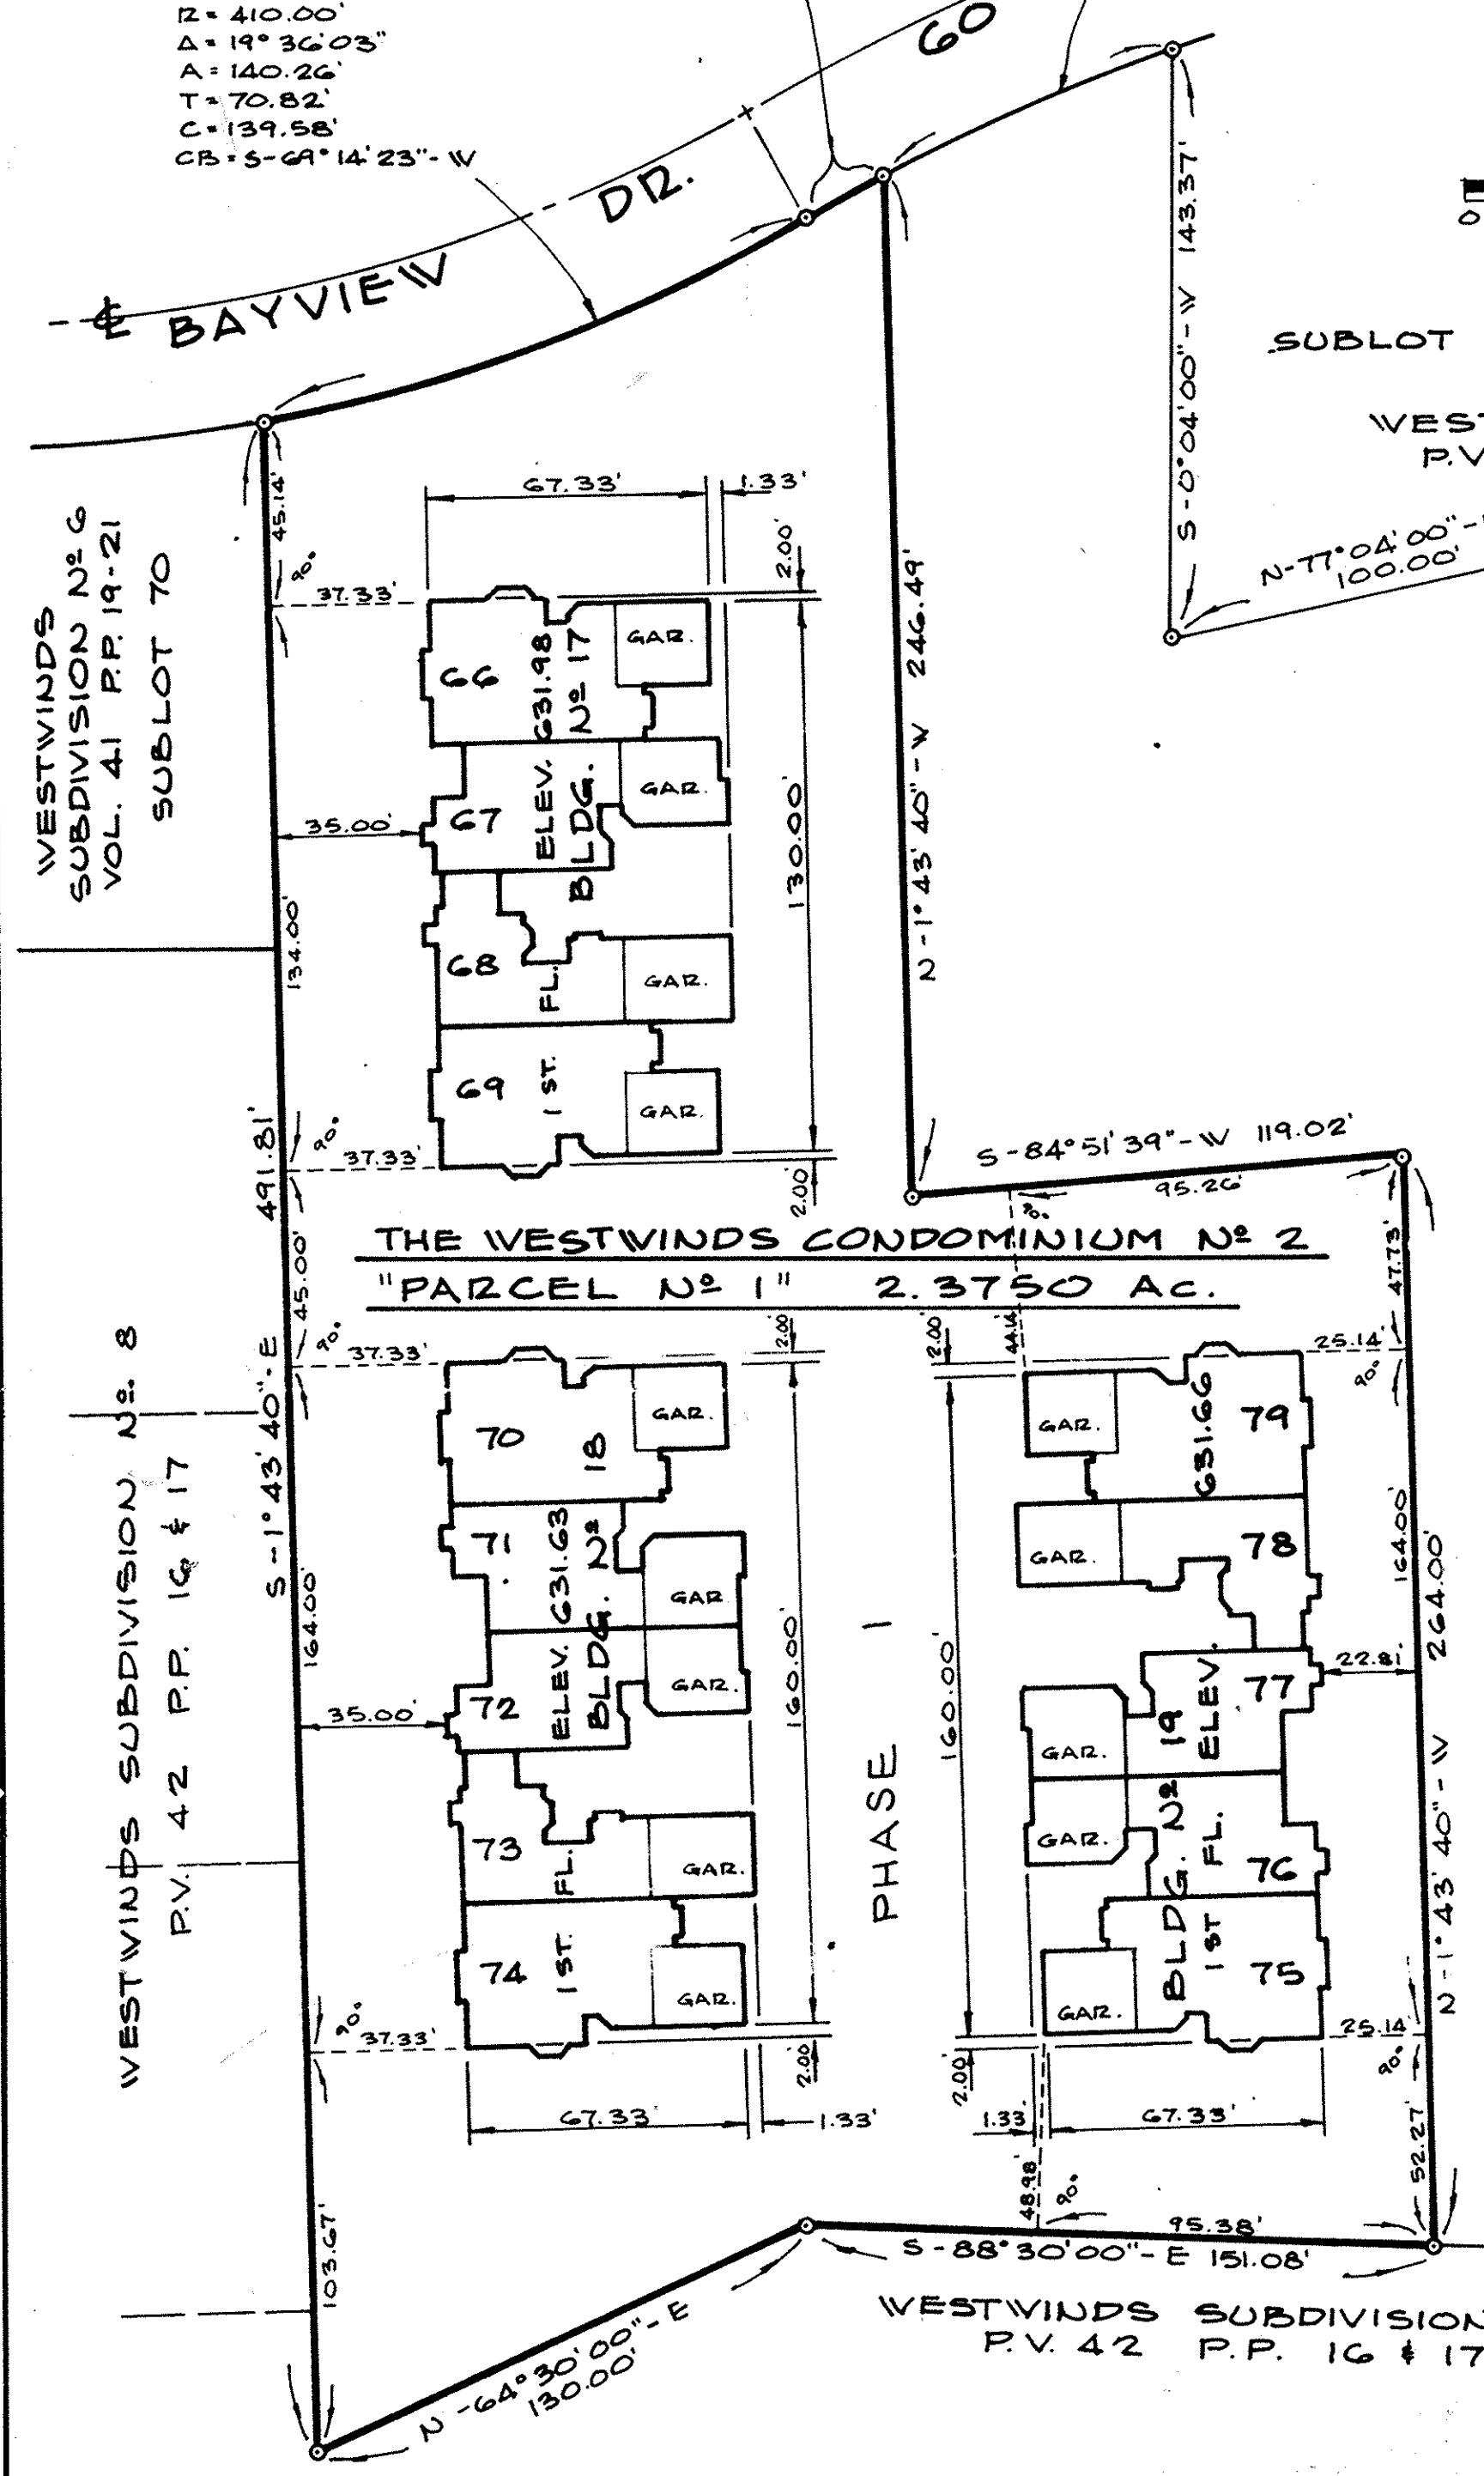 R = 410.00'
Δ = 19° 36' 03"
A = 140.26'
T = 70.82'
C = 139.58'
CB = S-69° 14' 23"-W
60
℄ BAYVIEW DR.
S-0° 04' 00"-W 143.37'
0
SUBLOT
WEST
P.V
N-77° 04' 00"-
100.00'
WESTWINDS
SUBDIVISION Nº 6
VOL. 41 P.P. 19-21
SUBLOT 70
45.14'
90°
37.33'
67.33'
1.33'
2.00'
66
67
68
69
GAR.
GAR.
GAR.
GAR.
1 ST. FL. ELEV. 631.98
BLDG. Nº 17
35.00'
134.00'
130.00'
N-1° 43' 40"-W 246.49'
90°
37.33'
2.00'
S-84° 51' 39"-W 119.02'
95.26'
90°
47.73'
S-1° 43' 40"-E 491.81'
45.00'
THE WESTWINDS CONDOMINIUM Nº 2
"PARCEL Nº 1" 2.3750 AC.
90°
37.33'
2.00'
2.00'
44.14'
25.14'
90°
WESTWINDS SUBDIVISION Nº. 8
P.V. 42 P.P. 16 & 17
70
71
72
73
74
GAR.
GAR
GAR.
GAR.
GAR.
1 ST. FL. ELEV. 631.63
BLDG. Nº 18
164.00'
35.00'
160.00'
PHASE 1
160.00'
79
78
77
76
75
GAR.
GAR.
GAR.
GAR.
GAR.
1 ST FL. ELEV. 631.66
BLDG. Nº 19
22.81'
164.00'
N-1° 43' 40"-W 264.00'
90°
37.33'
2.00'
67.33'
1.33'
2.00'
1.33'
67.33'
25.14'
90°
52.27'
48.98'
90°
95.38'
S-88° 30' 00"-E 151.08'
103.67'
N-64° 30' 00"-E
130.00'
WESTWINDS SUBDIVISION
P.V. 42 P.P. 16 & 17